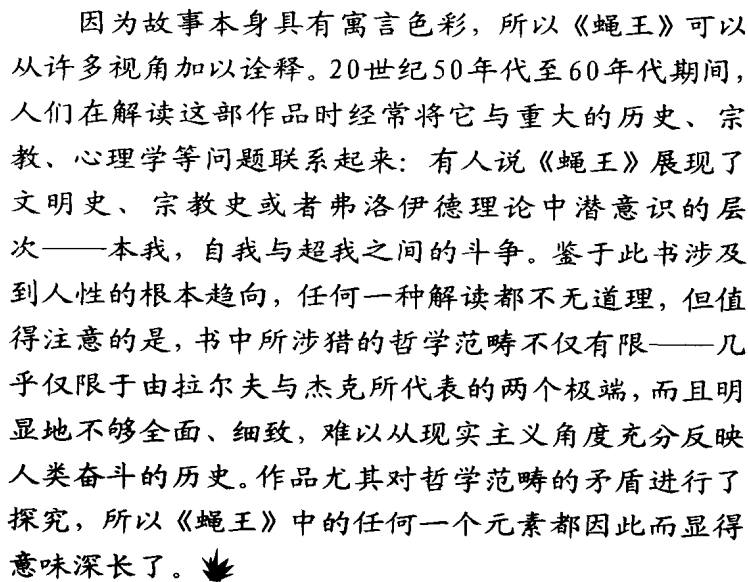 因为故事本身具有寓言色彩，所以《蝇王》可以
从许多视角加以诠释。20世纪50年代至60年代期间，
人们在解读这部作品时经常将它与重大的历史、宗
教、心理学等问题联系起来：有人说《蝇王》展现了
文明史、宗教史或者弗洛伊德理论中潜意识的层
次——本我，自我与超我之间的斗争。鉴于此书涉及
到人性的根本趋向，任何一种解读都不无道理，但值
得注意的是，书中所涉猎的哲学范畴不仅有限——几
乎仅限于由拉尔夫与杰克所代表的两个极端，而且明
显地不够全面、细致，难以从现实主义角度充分反映
人类奋斗的历史。作品尤其对哲学范畴的矛盾进行了
探究，所以《蝇王》中的任何一个元素都因此而显得
意味深长了。